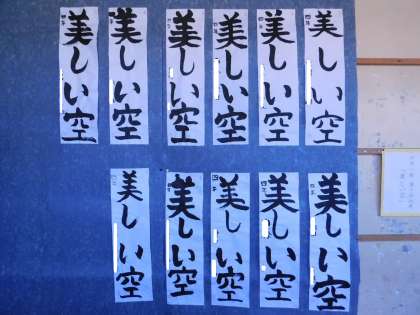 美しい空
美しい空
美しい空
美しい空
美しい空
美しい空
美しい空
美しい空
美しい空
美しい空
美しい空